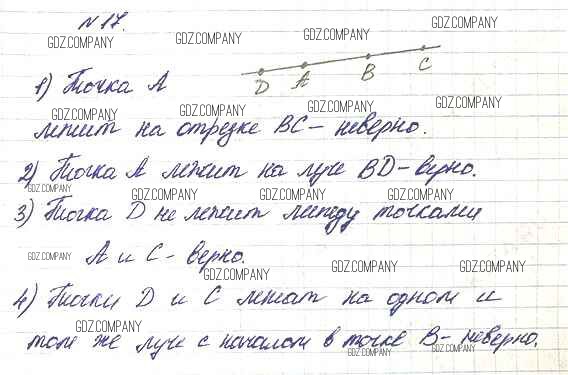 №17.
GDZ.COMPANY GDZ.COMPANY GDZ.COMPANY GDZ.COMPANY
D A B C
1) Точка А
GDZ.COMPANY GDZ.COMPANY GDZ.COMPANY GDZ.COMPANY
лежит на отрезке ВС – неверно.
2) Точка А лежит на луче BD – верно.
GDZ.COMPANY GDZ.COMPANY GDZ.COMPANY GDZ.COMPANY
3) Точка D не лежит между точками
GDZ.COMPANY А и С – верно.
GDZ.COMPANY GDZ.COMPANY GDZ.COMPANY
4) Точки D и C лежат на одном и
GDZ.COMPANY
том же луче с началом в точке В – неверно.
GDZ.COMPANY GDZ.COMPANY